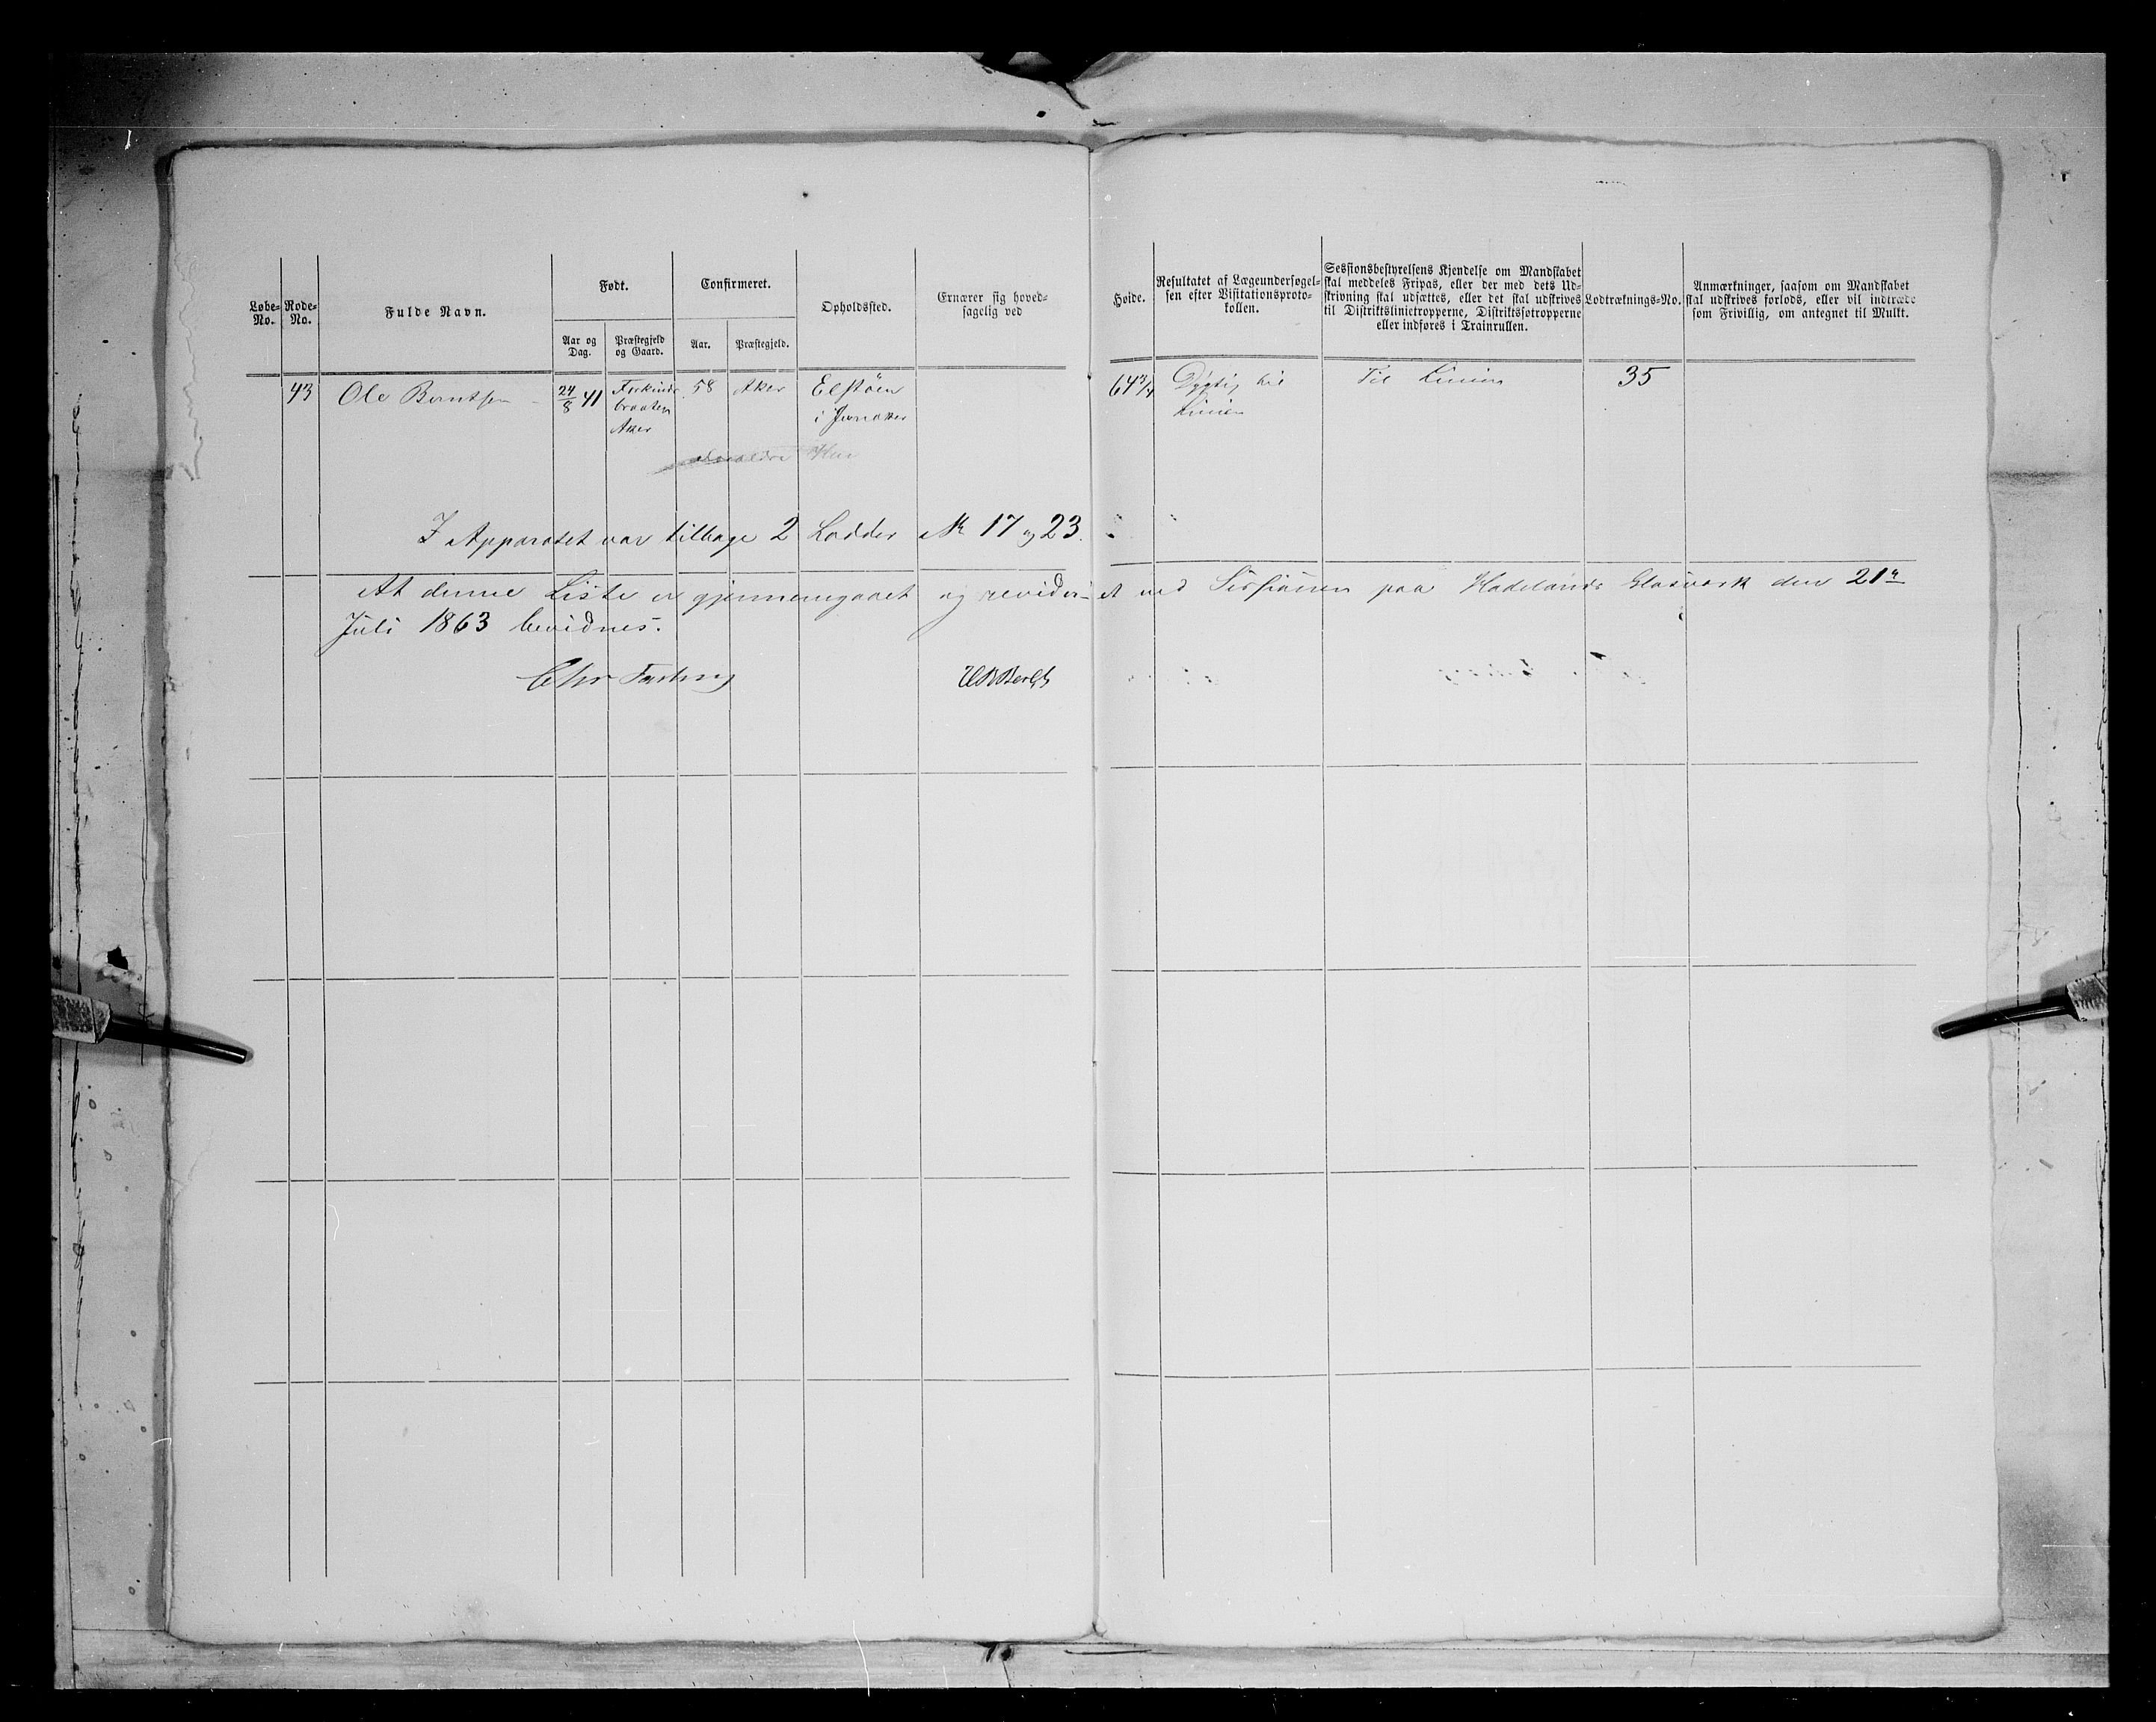 Løbe-No.
Rode-No.
Fulde Navn.
Født.
Aar og Dag.
Præstegjeld og Gaard.
Confirmeret.
Aar.
Præstegjeld.
Opholdssted.
Ernærer sig hoved-
sagelig ved
Høide.
Resultatet af Lægeundersøgel-
sen efter Visitationsproto-
kollen.
Sessionsbestyrelsens Kjendelse om Mandskabet
skal meddeles Fripas, eller der med dets Ud-
skrivning skal udsættes, eller det skal udskrives
til Distriktslinietropperne, Distriktsfotropperne
eller indføres i Trainrullen.
Lodtræknings-No.
Anmærkninger, saasom om Mandskabet
skal udskrives forlods, eller vil indtræde
som Frivillig, om antegnet til Mulkt.
43 Ole Berntsen 24/8 41 58 Aker Elstöen 64 3/4 Dygtig til Til Linien 35
braaten i Jevnaker Linien
Aker
I Apparatet var tilbage 2 Lodder No 17 og 23.
At denne Liste er gjennemgaaet og revideret ved Sessionen paa Hadelands Glasværk den 21de
Juli 1863 bevidnes.
Chr